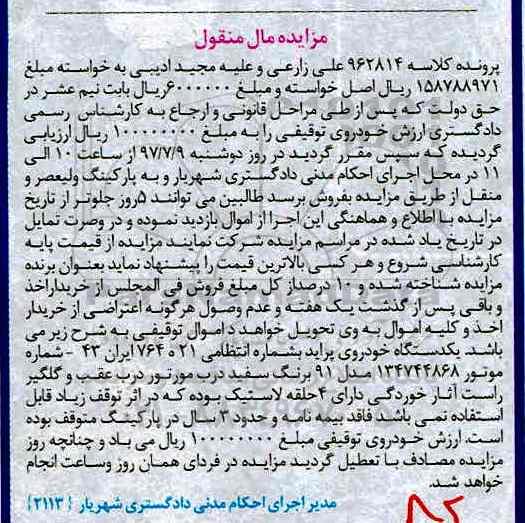 مزایده مال منقول
پرونده کلاسه ۹۶۲۸۱۴ علی زارعی و علیه مجید ادیبی به خواسته مبلغ
۱۵۸۷۸۸۹۷۱ ریال اصل خواسته و مبلغ ۶۰۰۰۰۰۰ریال بابت نیم عشر در
حق دولت که پس از طی مراحل قانونی و ارجاع به کارشناس رسمی
دادگستری ارزش خودروی توقیفی را به مبلغ ۱۰۰۰۰۰۰۰۰ ریال ارزیابی
گردیده که سپس مقرر گردید در روز دوشنبه ۹۷/۷/۹ از ساعت ۱۰ الی
۱۱ در محل اجرای احکام مدنی دادگستری شهریار و به پارکینگ ولیعصر و
منقل از طریق مزایده بفروش برسد طالبین می توانند ۵روز جلوتر از تاریخ
مزایده با اطلاع و هماهنگی این اجرا از اموال بازدید نموده و در وصرت تمایل
در تاریخ یاد شده در مراسم مزایده شرکت نمایند مزایده از قیمت پایه
کارشناسی شروع و هر کسی بالاترین قیمت را پیشنهاد نماید بعنوان برنده
مزایده شناخته شده و ۱۰ درصداز کل مبلغ فروش فی المجلس از خریداراخذ
و باقی پس از گذشت یک هفته و عدم وصول هرگونه اعتراضی از خریدار
اخذ و کلیه اموال به وی تحویل خواهد د اموال توقیفی به شرح زیر می
باشد. یکدستگاه خودروی پراید بشماره انتظامی ۲۱ ه ۷۶۴ ایران ۴۳ -شماره
موتور ۱۳۴۷۴۴۸۶۸ مدل ۹۱ برنگ سفید درب مورتور درب عقب و گلگیر
راست آثار خوردگی دارای ۴حلقه لاستیک بوده که در اثر توقف زیاد قابل
استفاده نمی باشد فاقد بیمه نامه و حدود ۳ سال در پارکینگ متوقف بوده
است. ارزش خودروی توقیفی مبلغ ۱۰۰۰۰۰۰۰۰ ریال می باد و چنانچه روز
مزایده مصادف با تعطیل گردید مزایده در فردای همان روز وساعت انجام
خواهد شد.
مدیر اجرای احکام مدنی دادگستری شهریار {۲۱۱۳}